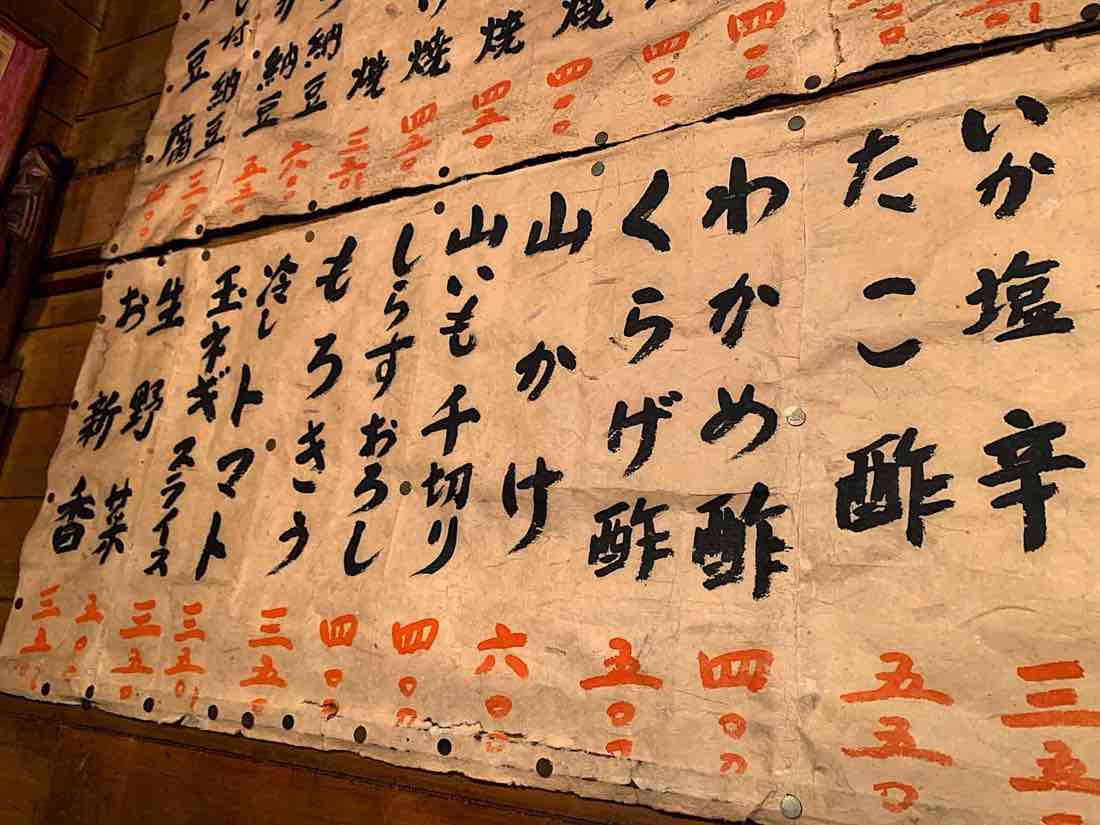 四〇〇
四〇〇
焼 四〇〇
焼 四五〇
焼 四五〇
焼 三五〇
納豆 六〇〇
納豆 五五〇
付納豆 三〇〇
豆腐
いか塩辛 三五
たこ酢 五五〇
わかめ酢 四〇〇
くらげ酢 五〇〇
山かけ 六〇〇
山いも千切り 四〇〇
しらすおろし 四〇〇
もろきう 三五〇
冷しトマト 三五〇
玉ネギスライス 三五〇
生野菜 五〇〇
お新香 三五〇